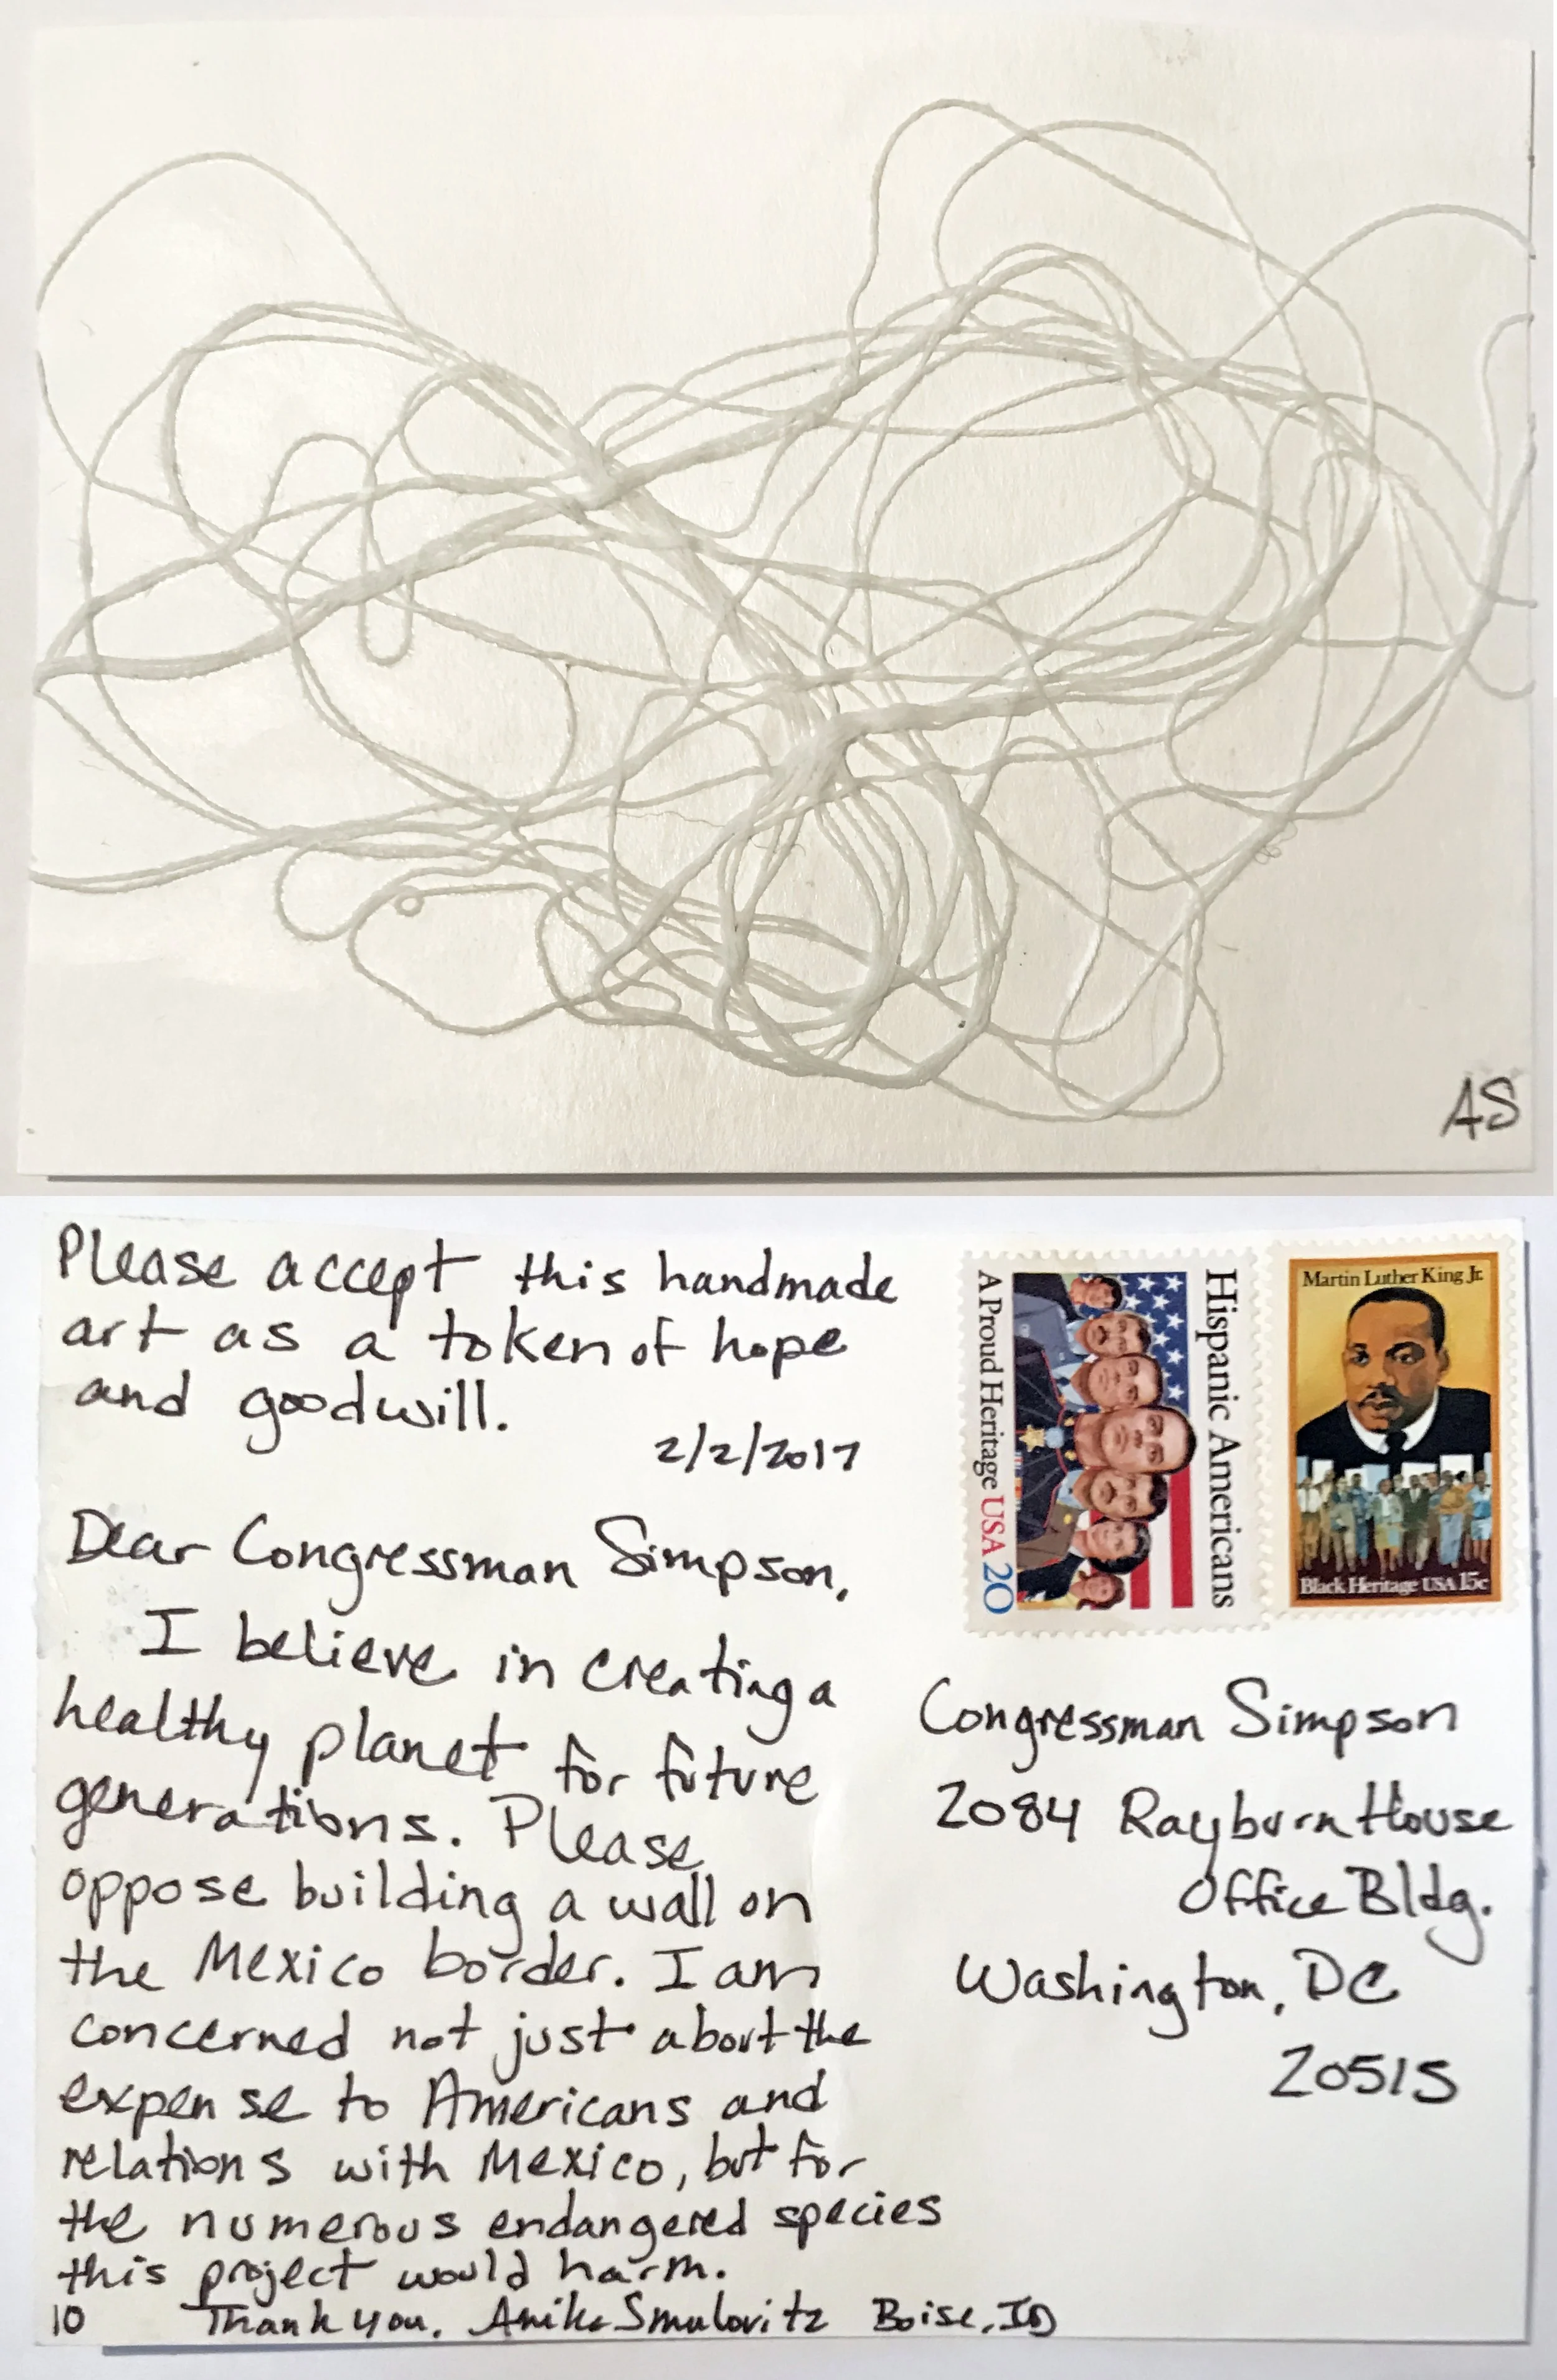 AS
Please accept this handmade
art as a token of hope
and goodwill.
2/2/2017
Dear Congressman Simpson,
I believe in creating a
healthy planet for future
generations. Please
oppose building a wall on
the Mexico border. I am
concerned not just about the
expense to Americans and
relations with Mexico, but for
the numerous endangered species
this project would harm.
10 Thank you. Anika Smulovitz Boise, ID
Hispanic Americans
A Proud Heritage USA 20
Martin Luther King Jr.
Black Heritage USA 15c
Congressman Simpson
2084 Rayburn House
Office Bldg.
Washington, DC
20515